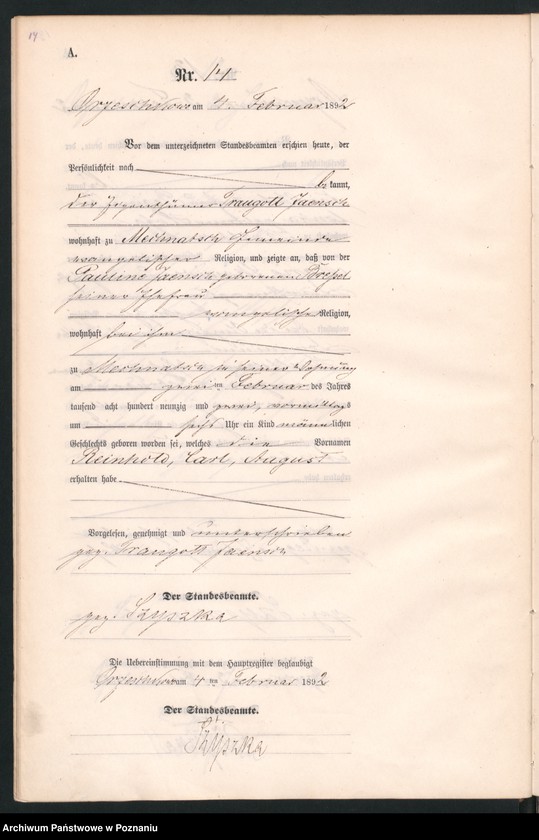 14
A.
Nr. 14
Orzeschkowo am 4. Februar 1892
Vor dem unterzeichneten Standesbeamten erschien heute, der
Persönlichkeit nach
be kannt,
der Eigenthümer Traugott Jaensch
wohnhaft zu Mechnatsch Gemeinde
evangelischer Religion, und zeigte an, daß von der
Pauline Jaensch geborenen
seiner Ehefrau
evangelischer Religion,
wohnhaft bei ihm
zu Mechnatsch in seiner Wohnung
am zwei ten Februar des Jahres
tausend acht hundert neunzig und zwei, vormittags
um sechs Uhr ein Kind männlichen
Geschlechts geboren worden sei, welches die Vornamen
Reinhold, Carl, August
erhalten habe
Vorgelesen, genehmigt und unterschrieben
gez. Traugott Jaensch
Der Standesbeamte.
gez. Szyszka
Die Uebereinstimmung mit dem Hauptregister beglaubigt
Orzeschkowo am 4 ten Februar 1892
Der Standesbeamte.
Szyszka
Archiwum Państwowe w Poznaniu